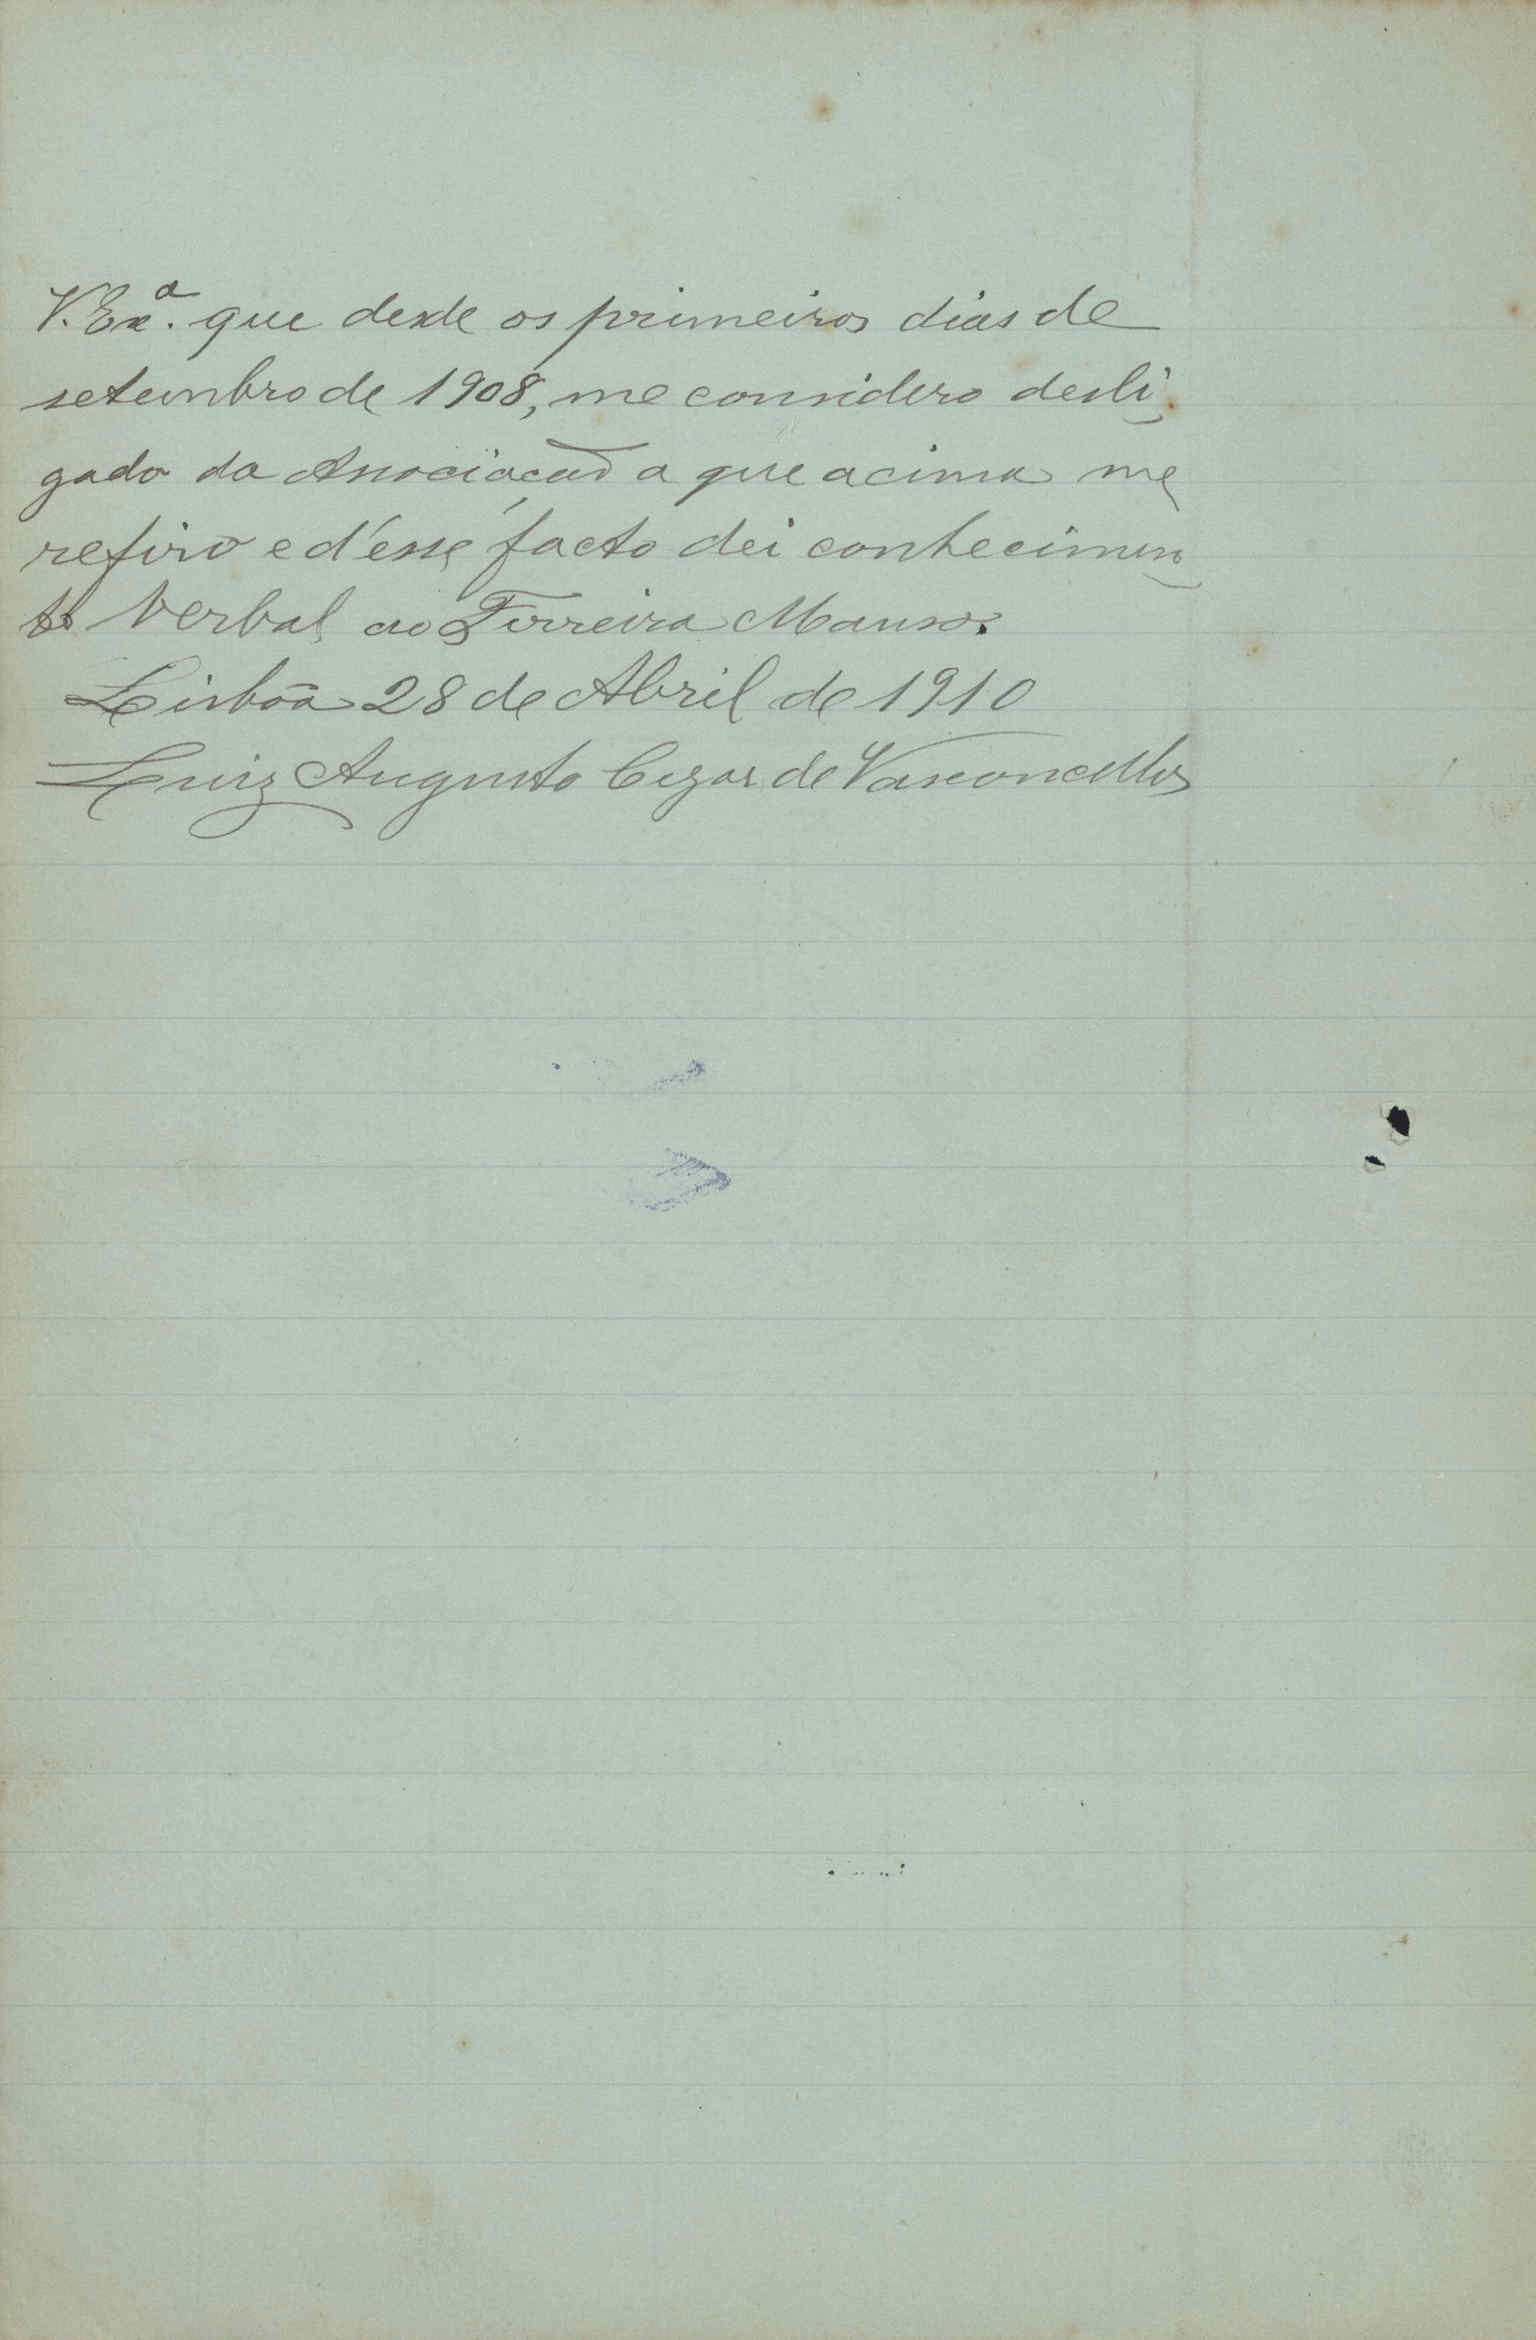 V. Ex.ª que desde os primeiros dias de
setembro de 1908, me considero desli-
gado da Associação a que acima me
refiro e d'esse facto dei conhecimen-
to verbal ao Ferreira Manso.
Lisbôa 28 de Abril de 1910
Luiz Augusto Cezar de Vasconcellos